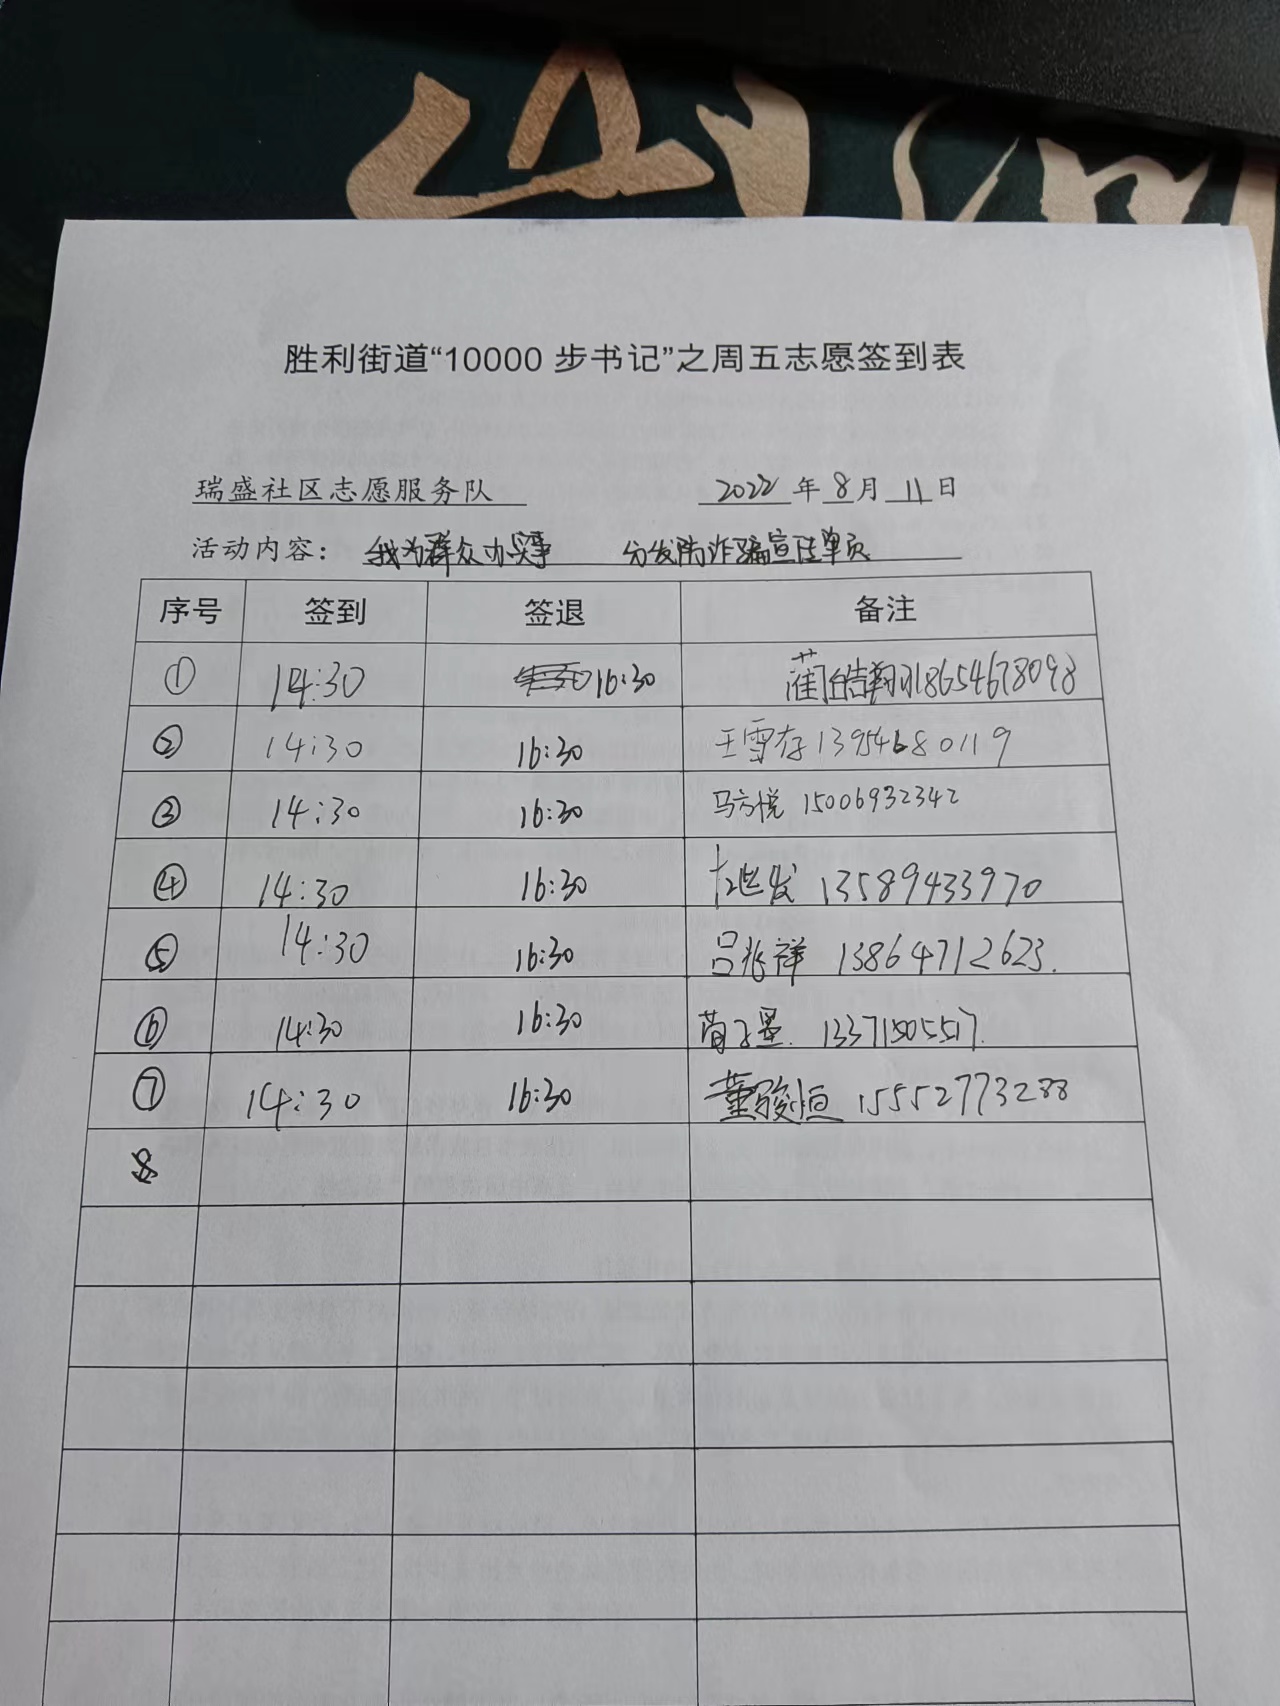 胜利街道“10000 步书记”之周五志愿签到表
瑞盛社区志愿服务队 2022 年 8 月 11 日
活动内容: 我为群众办实事 分发防诈骗宣传单页
序号 签到 签退 备注
① 14:30 16:30 蔺皓翔 18654678098
② 14:30 16:30 王雪存 13954680119
③ 14:30 16:30 马方悦 15006932342
④ 14:30 16:30 13589433970
⑤ 14:30 16:30 吕兆祥 13864712623.
⑥ 14:30 16:30 13371505517.
⑦ 14:30 16:30 董骏恒 15552773288
8